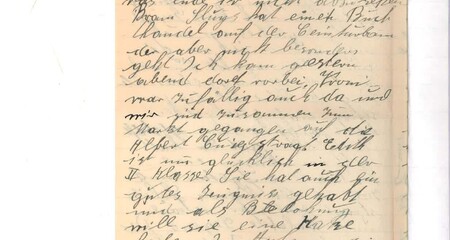 ist nicht
Bram Sluys hat einen Buch
handel auf der Ceintuurbaan
der aber nicht besonders
geht. Ich kam gestern
abend dort vorbei, Bram
war zufällig auch da und
wir sind zusammen zum
Markt gegangen auf die
Albert Cuypstraat. Edith
ist nun glücklich in der
II Klasse. Sie hat auch ein
gutes Zeugniss gehabt
und als Belohnung
will sie eine Katze